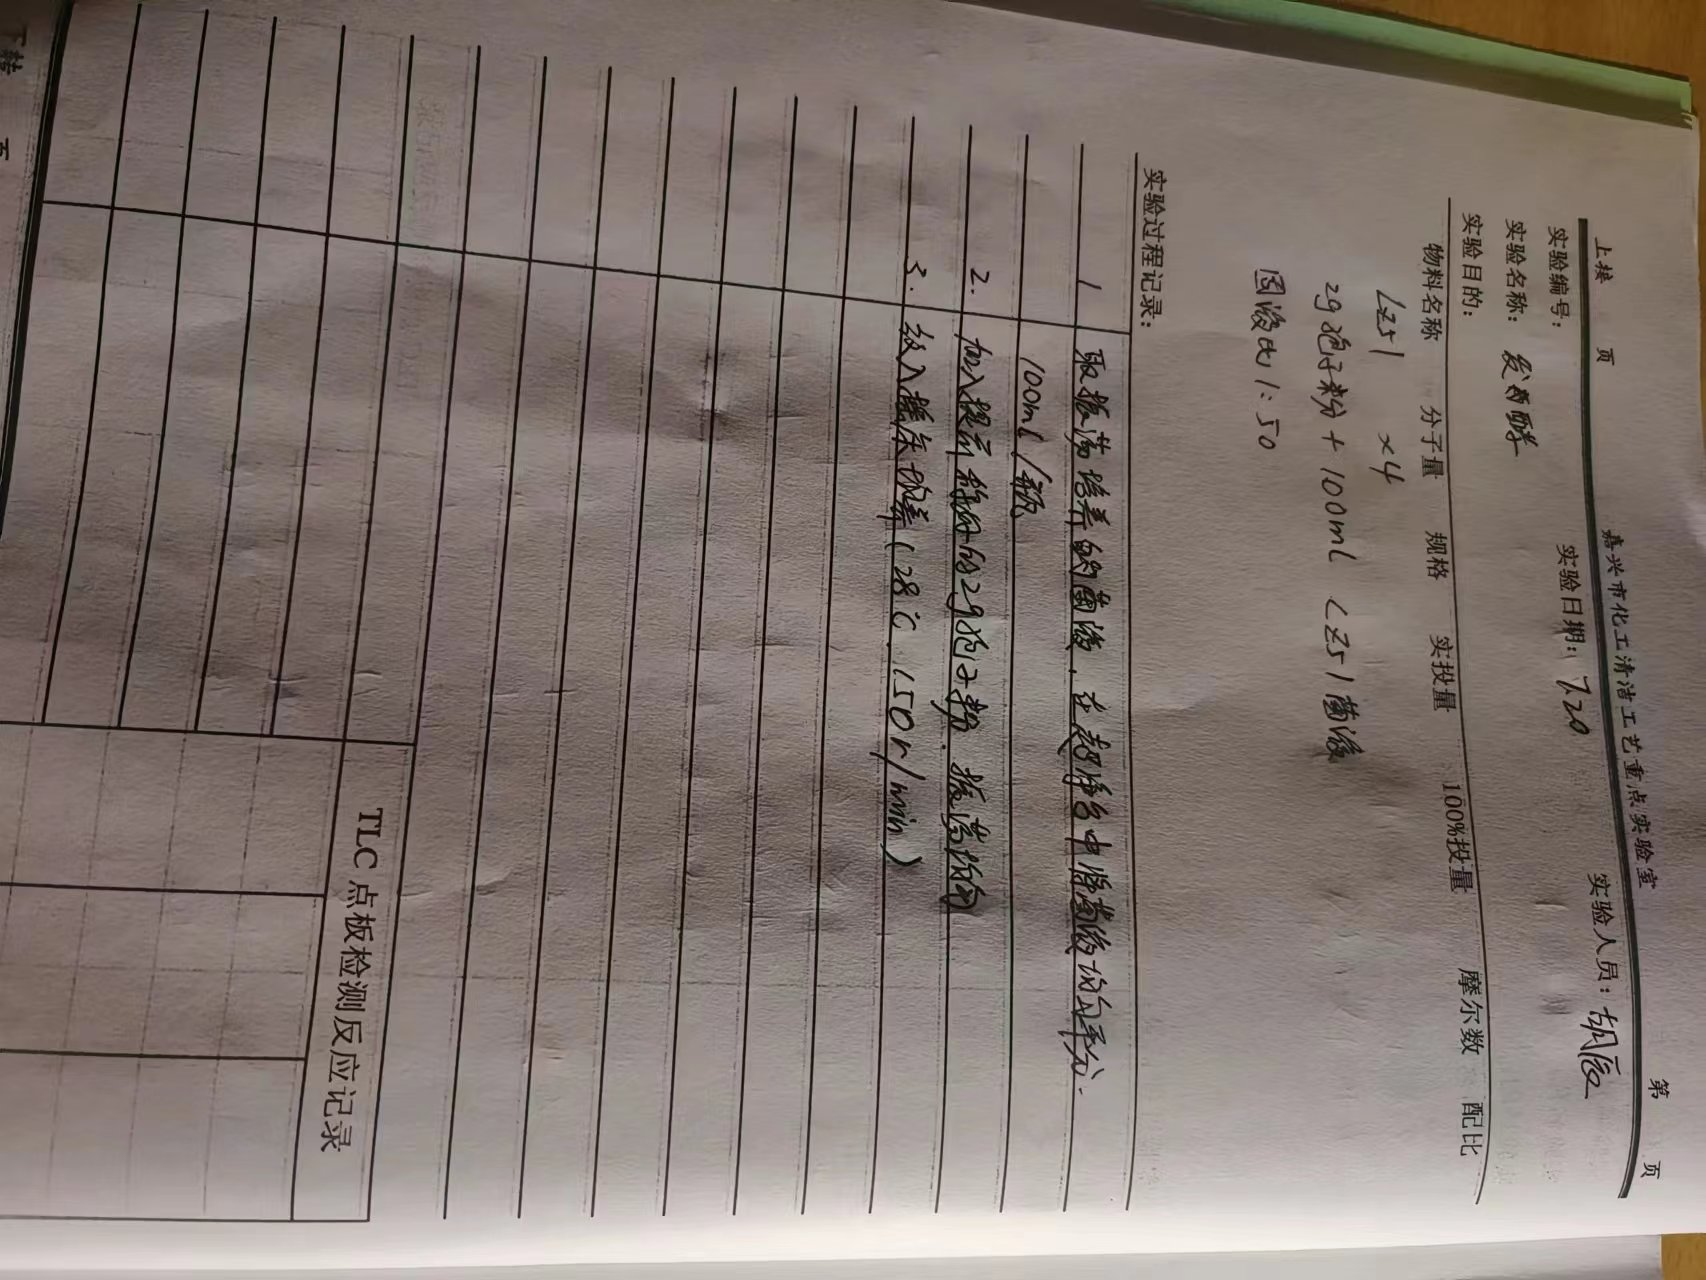 嘉兴市化工清洁工艺重点实验室
上接 页 第 页
实验编号： 实验日期：7.20 实验人员：胡
实验名称：发酵
实验目的：
物料名称 分子量 规格 实投量 100%投量 摩尔数 配比
LZ51 ×4
2g孢子粉 + 100ml LZ51菌液
固液比1:50
实验过程记录：
1 取振荡培养的菌液，在超净台中将菌液均匀平分.
100ml/瓶
2. 加入提前称好的2g孢子粉. 振荡均匀
3. 放入摇床培养(28℃、150r/min)
TLC 点板检测反应记录
下转 页